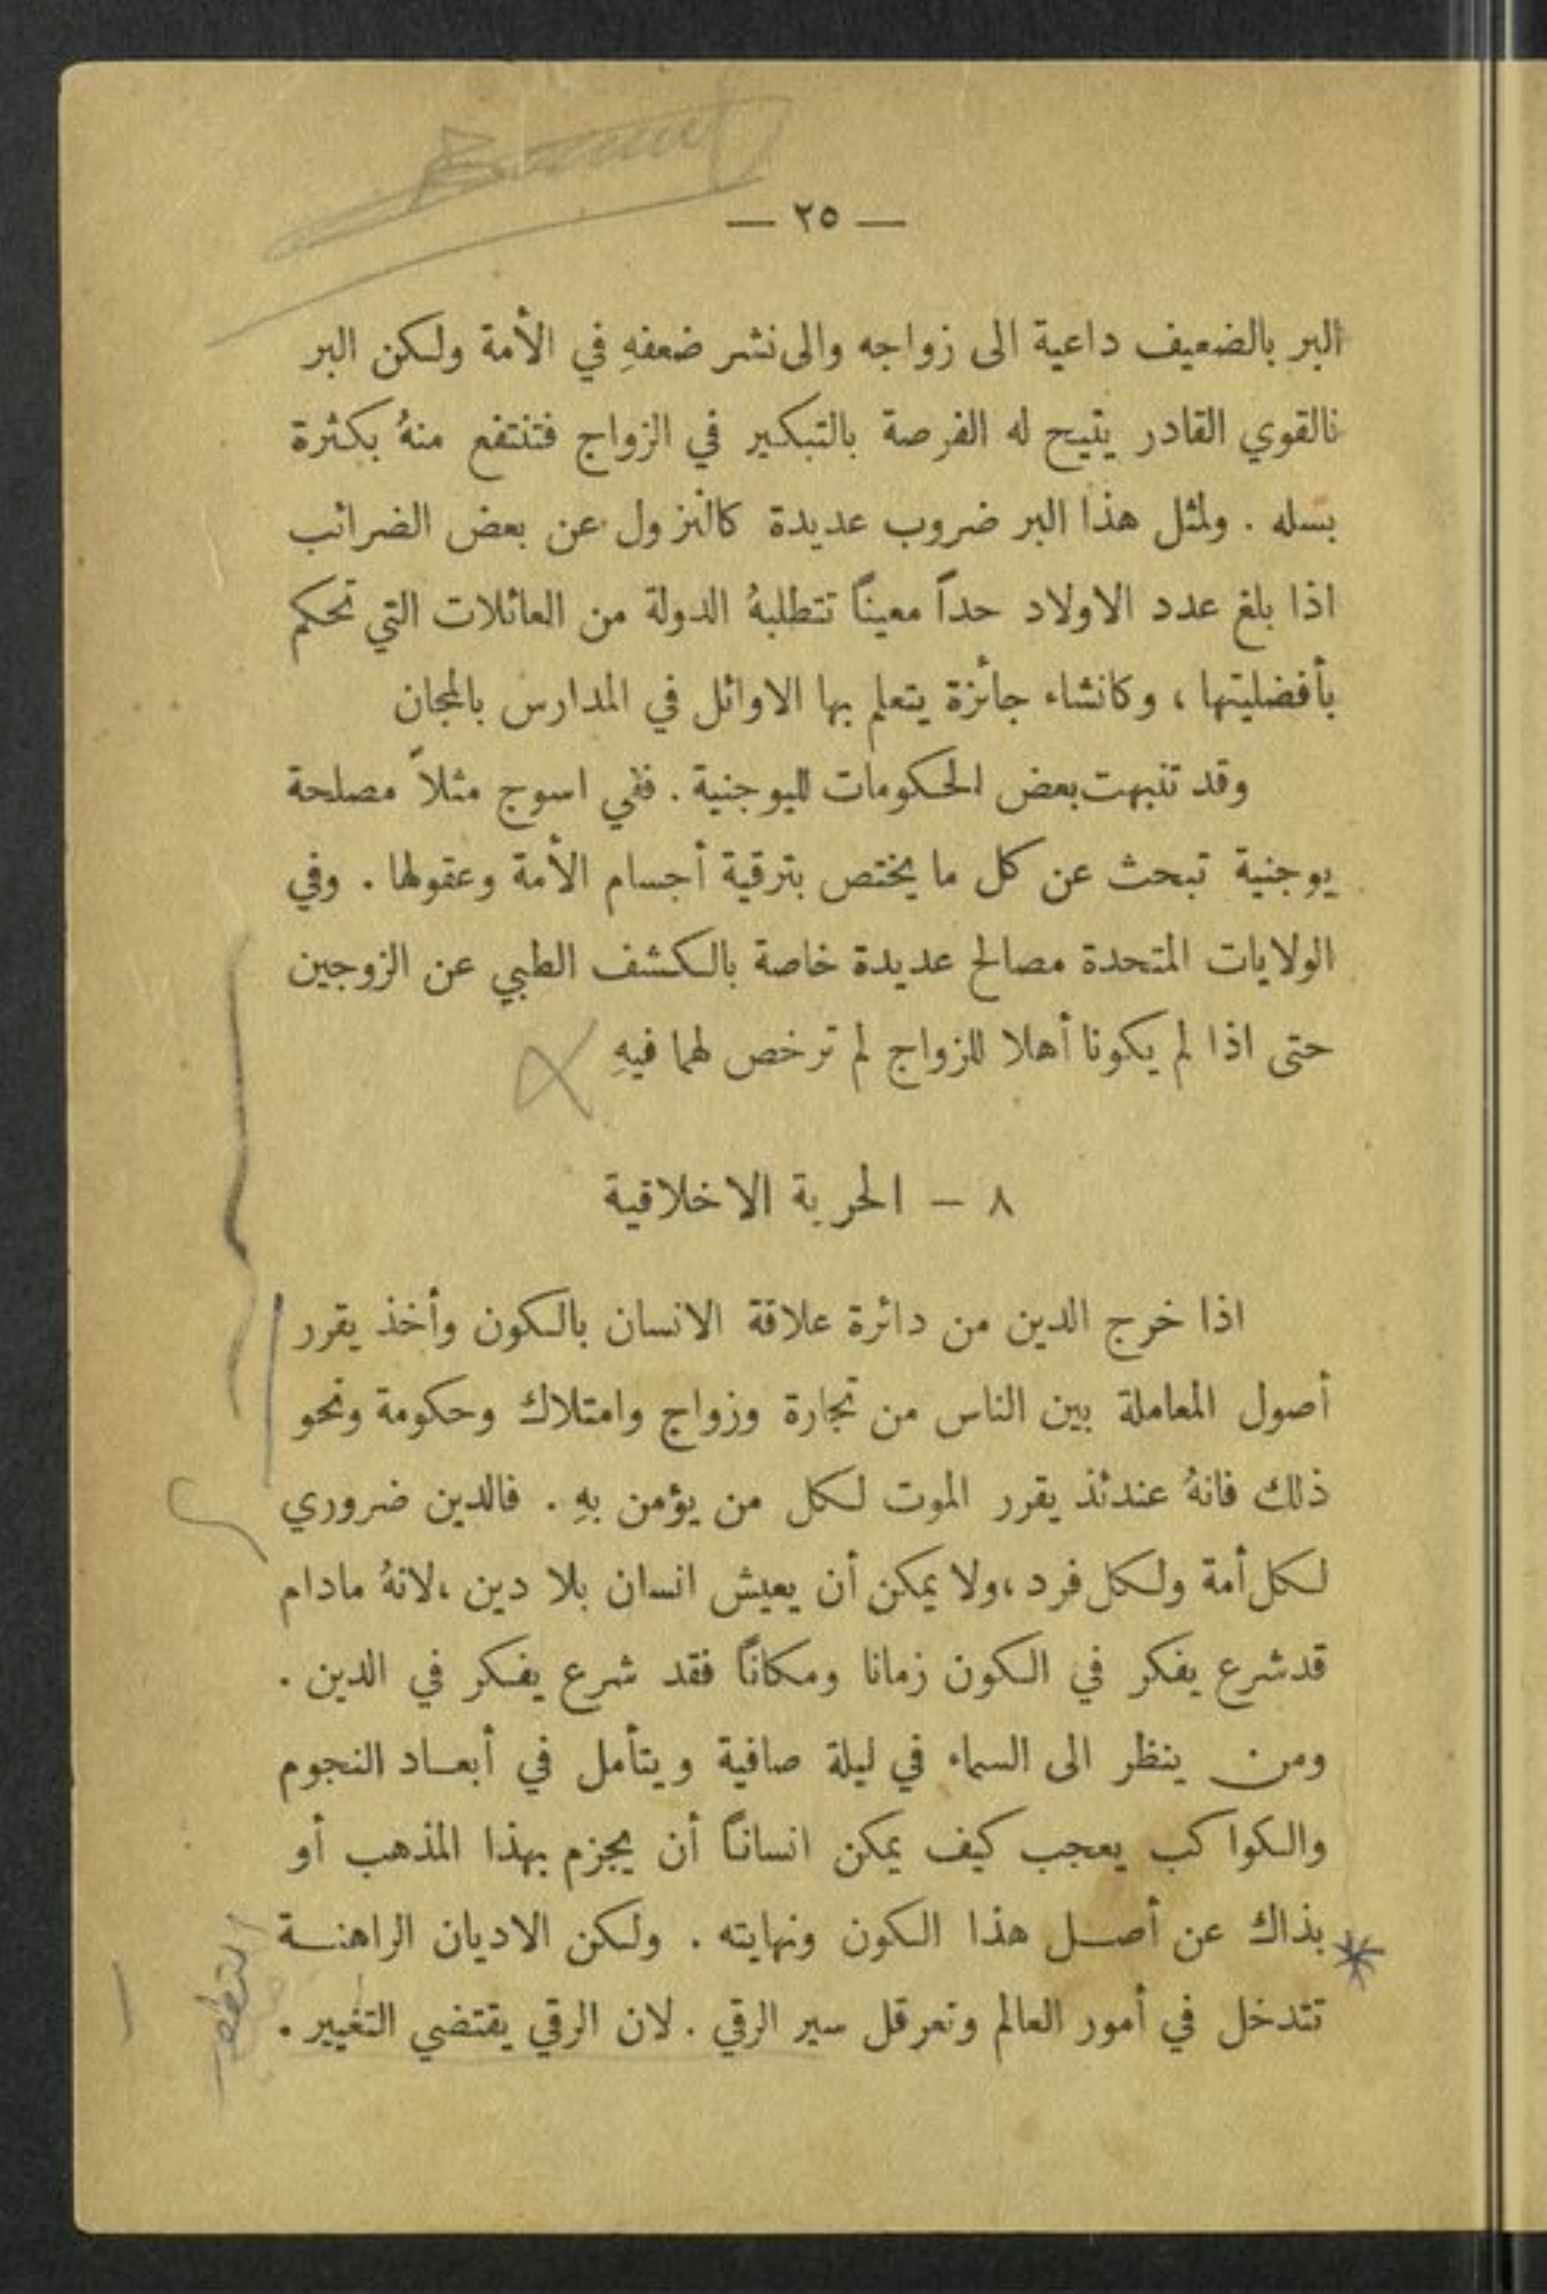 — ٢٥ —
البر بالضعيف داعية الى زواجه والى نشر ضعفهِ في الأمة ولكن البر
نالقوي القادر يتيح له الفرصة بالتبكير في الزواج فتنتفع منهُ بكثرة
بسله . ولمثل هذا البر ضروب عديدة كالنزول عن بعض الضرائب
اذا بلغ عدد الاولاد حداً معيناً تتطلبهُ الدولة من العائلات التي تحكم
بأفضليتها ، وكانشاء جائزة يتعلم بها الاوائل في المدارس بالمجان
وقد تنبهت بعض الحكومات لليوجنية . ففي اسوج مثلاً مصلحة
يوجنية تبحث عن كل ما يختص بترقية أجسام الأمة وعقولها . وفي
الولايات المتحدة مصالح عديدة خاصة بالكشف الطبي عن الزوجين
حتى اذا لم يكونا أهلا للزواج لم ترخص لهما فيهِ
٨ — الحرية الاخلاقية
اذا خرج الدين من دائرة علاقة الانسان بالكون وأخذ يقرر
أصول المعاملة بين الناس من تجارة وزواج وامتلاك وحكومة ونحو
ذلك فانهُ عندئذ يقرر الموت لكل من يؤمن بهِ . فالدين ضروري
لكل أمة ولكل فرد ، ولا يمكن أن يعيش انسان بلا دين ، لانهُ مادام
قد شرع يفكر في الكون زمانا ومكاناً فقد شرع يفكر في الدين .
ومن ينظر الى السماء في ليلة صافية ويتأمل في أبعاد النجوم
والكواكب يعجب كيف يمكن انساناً أن يجزم بهذا المذهب أو
بذاك عن أصل هذا الكون ونهايته . ولكن الاديان الراهنة
تتدخل في أمور العالم وتعرقل سير الرقي . لان الرقي يقتضي التغيير .